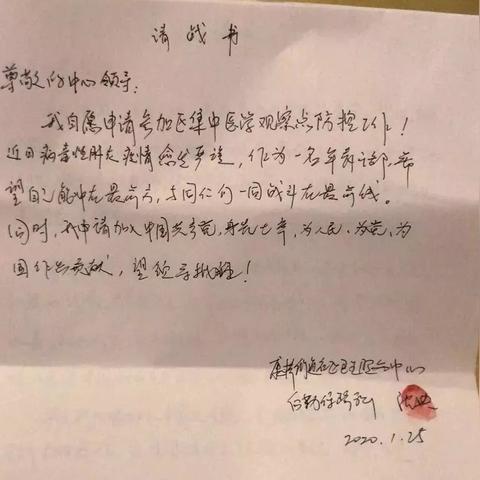 请战书
尊敬的中心领导:
我自愿申请参加区集中医学观察点防控工作!
近日病毒性肺炎疫情愈发严峻,作为一名年青干部,希
望自己能冲在最前方,与同仁们一同战斗在最前线。
同时,我申请加入中国共产党,身先士卒,为人民、为党、为
国作出贡献,望领导批准!
社区卫生服务中心
2020.1.25